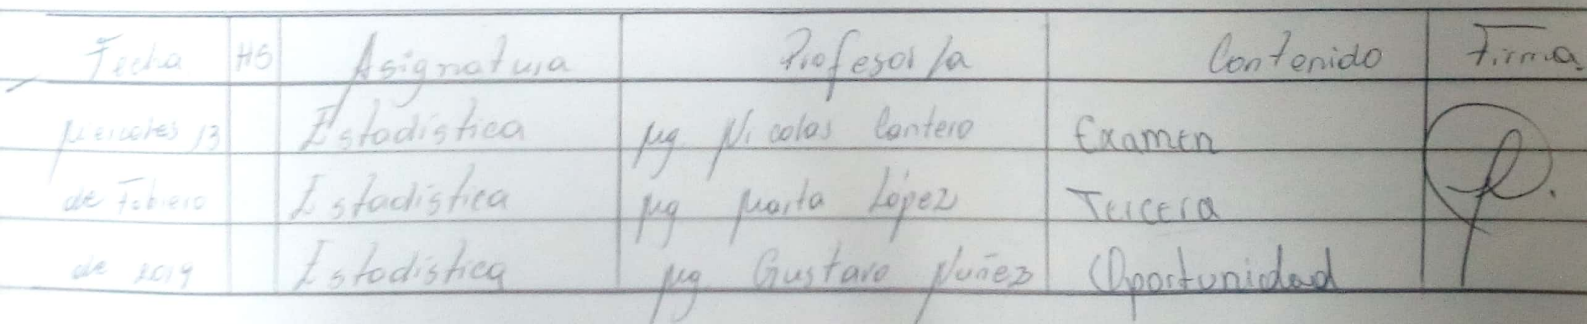 Fecha HS Asignatura Profesor/a Contenido Firma
Miercoles 13 Estadística Mg Nicolas Cantero Examen
de Febrero Estadística Mg Marta López Tercera
de 2019 Estadística Mg Gustavo Nuñez Oportunidad